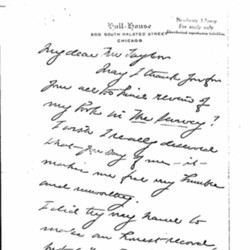 Hull-House
800 SOUTH HALSTED STREET
CHICAGO
Newberry Library
For study only
My dear Mr Taylor
May I thank you for
your all too kind review of
my book in The Survey?
I wish I really deserved
what you say of me - it
makes me feel very humble
and unworthy.
I did try very hard to
make an honest record,